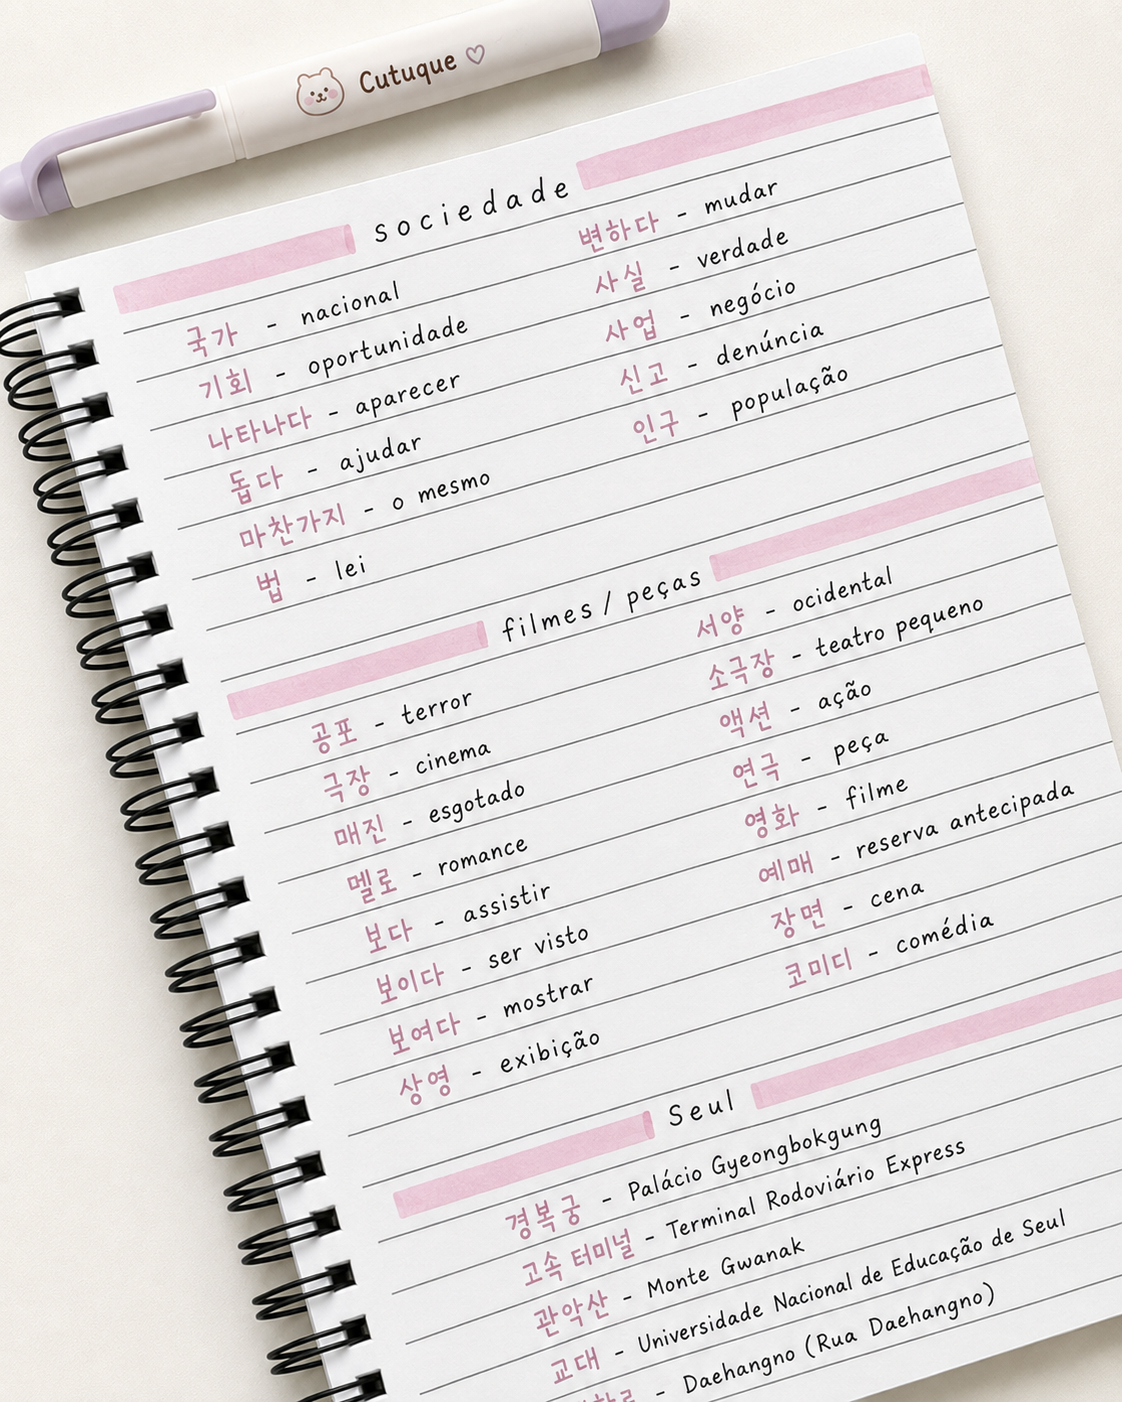 Cutuque
sociedade
국가 - nacional
기회 - oportunidade
나타나다 - aparecer
돕다 - ajudar
마찬가지 - o mesmo
법 - lei
변하다 - mudar
사실 - verdade
사업 - negócio
신고 - denúncia
인구 - população
filmes / peças
공포 - terror
극장 - cinema
매진 - esgotado
멜로 - romance
보다 - assistir
보이다 - ser visto
보여다 - mostrar
상영 - exibição
서양 - ocidental
소극장 - teatro pequeno
액션 - ação
연극 - peça
영화 - filme
예매 - reserva antecipada
장면 - cena
코미디 - comédia
Seul
경복궁 - Palácio Gyeongbokgung
고속 터미널 - Terminal Rodoviário Express
관악산 - Monte Gwanak
교대 - Universidade Nacional de Educação de Seul
- Daehangno (Rua Daehangno)